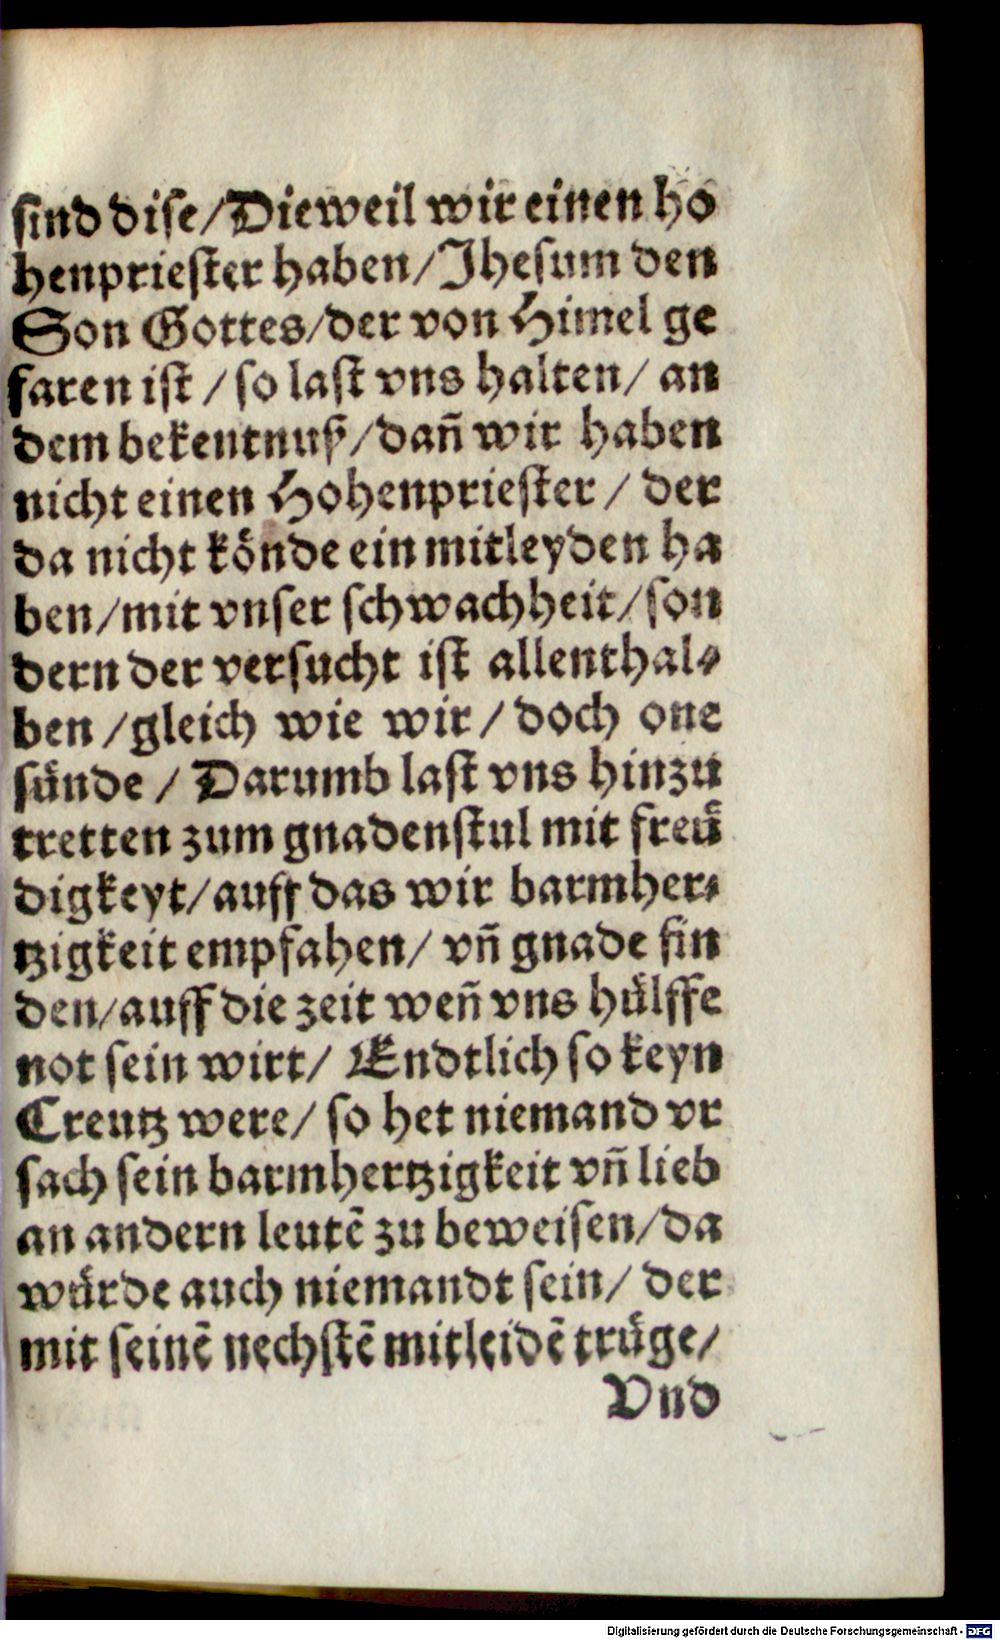 sind dise/Dieweil wir einen ho
henpriester haben/Jhesum den
Son Gottes/der von Himel ge
faren ist / so last vns halten/ an
dem bekentnuß/dañ wir haben
nicht einen Hohenpriester / der
da nicht könde ein mitleyden ha
ben/mit vnser schwachheit/son
dern der versucht ist allenthal⸗
ben /gleich wie wir / doch one
sünde / Darumb last vns hinzu
tretten zum gnadenstul mit freü
digkeyt/auff das wir barmher⸗
tzigkeit empfahen/ vñ gnade fin
den/auff die zeit weñ vns hülffe
not sein wirt/ Endtlich so keyn
Creutz were/ so het niemand vr
sach sein barmhertzigkeit vñ lieb
an andern leutẽ zu beweisen/da
würde auch niemandt sein/ der
mit seinẽ nechstẽ mitleidẽ trüge/
Vnd
Digitalisierung gefördert durch die Deutsche Forschungsgemeinschaft - DFG